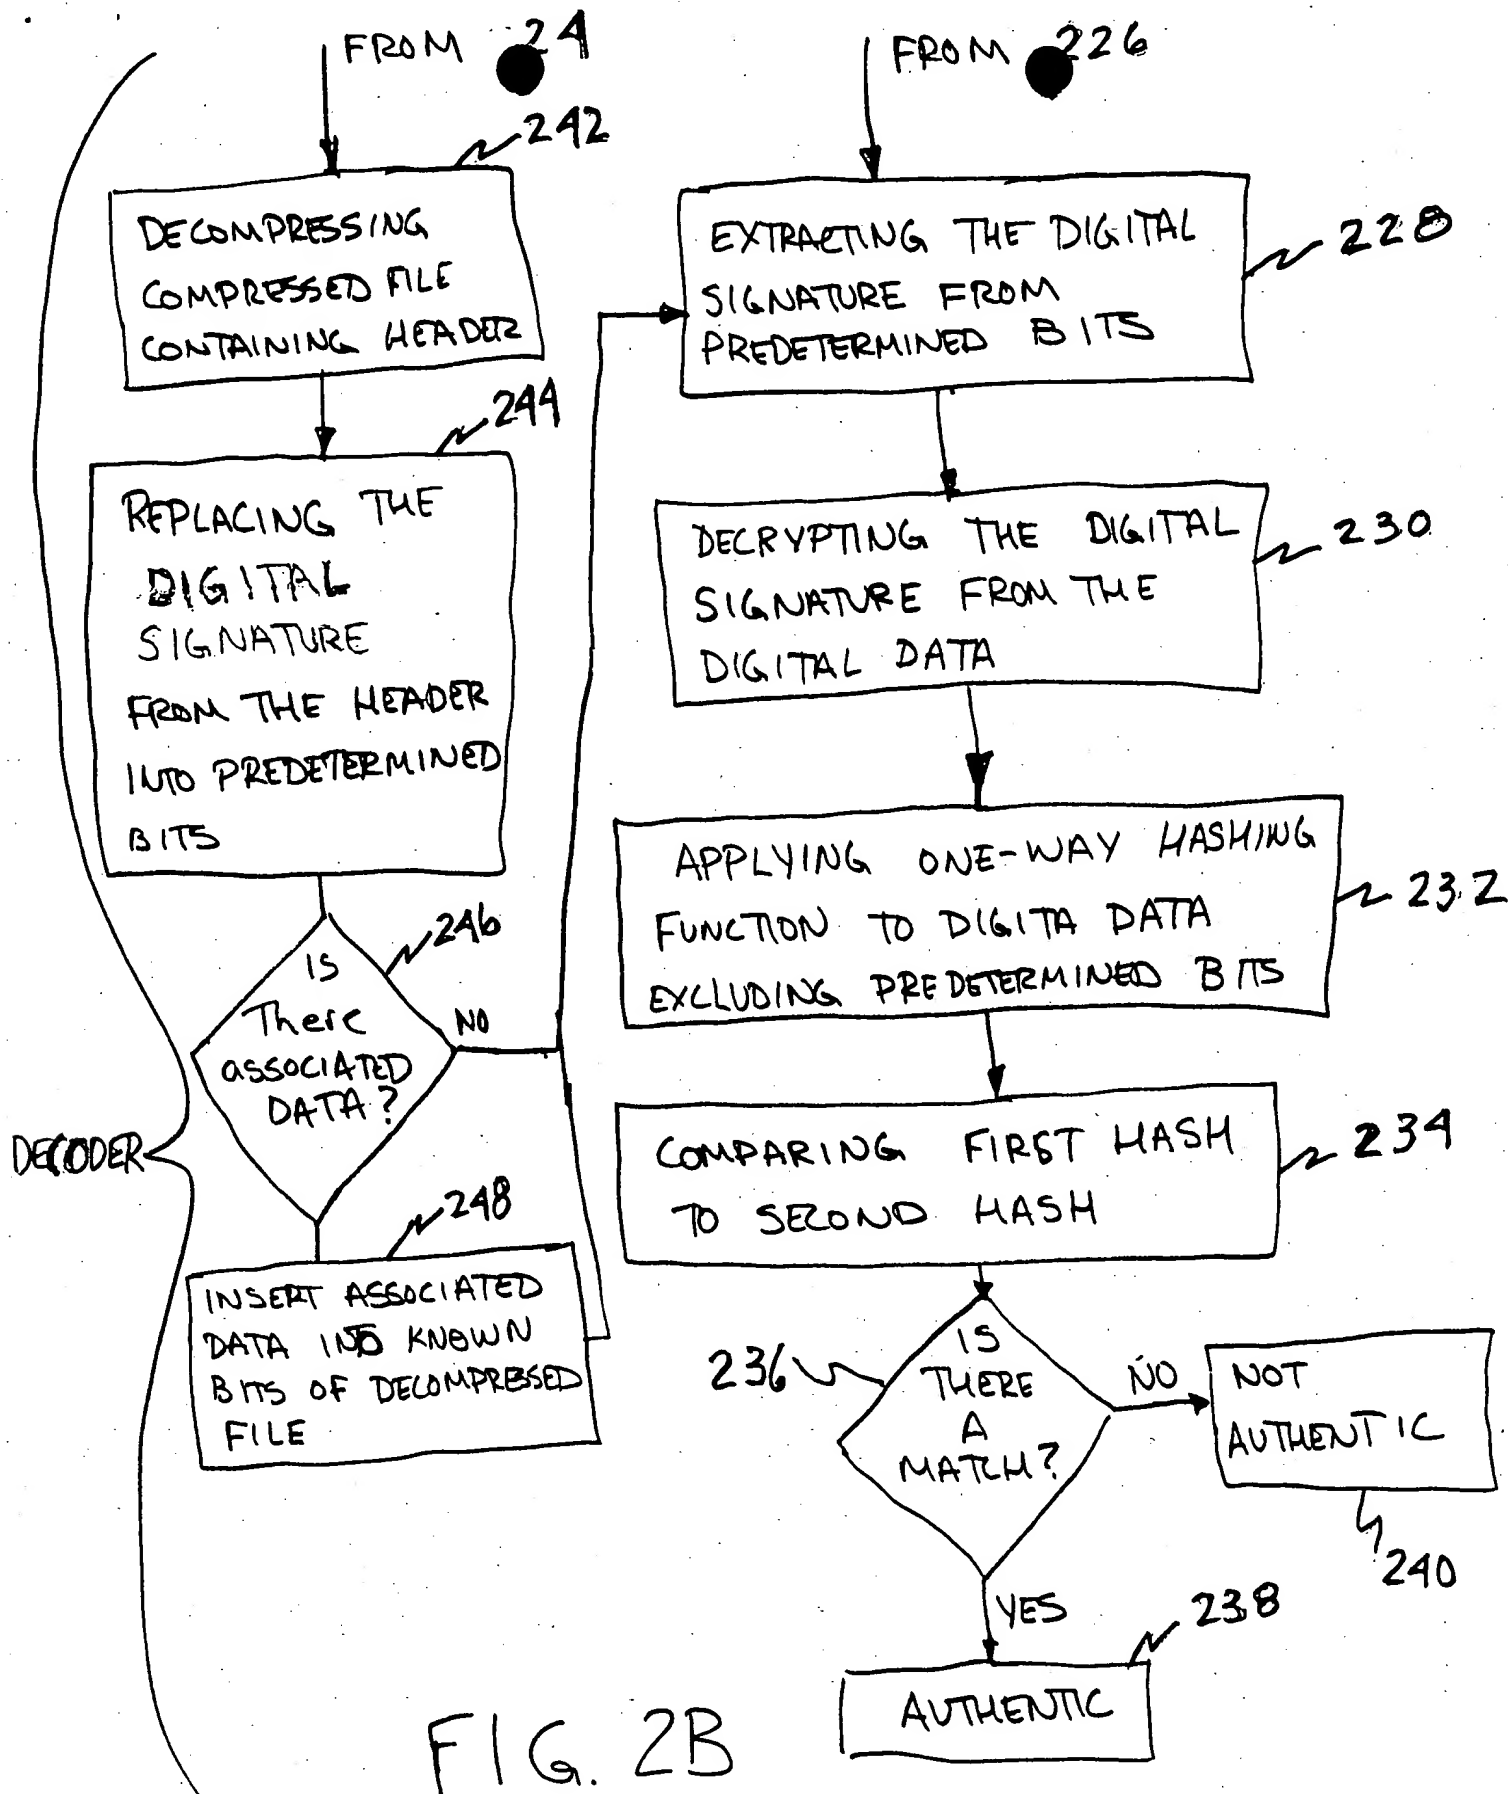 FROM 24
242
DECOMPRESSING
COMPRESSED FILE
CONTAINING HEADER
244
REPLACING THE
DIGITAL
SIGNATURE
FROM THE HEADER
INTO PREDETERMINED
BITS
246
IS
There
ASSOCIATED
DATA?
NO
DECODER
248
INSERT ASSOCIATED
DATA INTO KNOWN
BITS OF DECOMPRESSED
FILE
FROM 226
EXTRACTING THE DIGITAL
SIGNATURE FROM
PREDETERMINED BITS
228
DECRYPTING THE DIGITAL
SIGNATURE FROM THE
DIGITAL DATA
230
APPLYING ONE-WAY HASHING
FUNCTION TO DIGITA DATA
EXCLUDING PREDETERMINED BITS
232
COMPARING FIRST HASH
TO SECOND HASH
234
236
IS
THERE
A
MATCH?
NO
NOT
AUTHENTIC
240
YES
238
AUTHENTIC
FIG. 2B